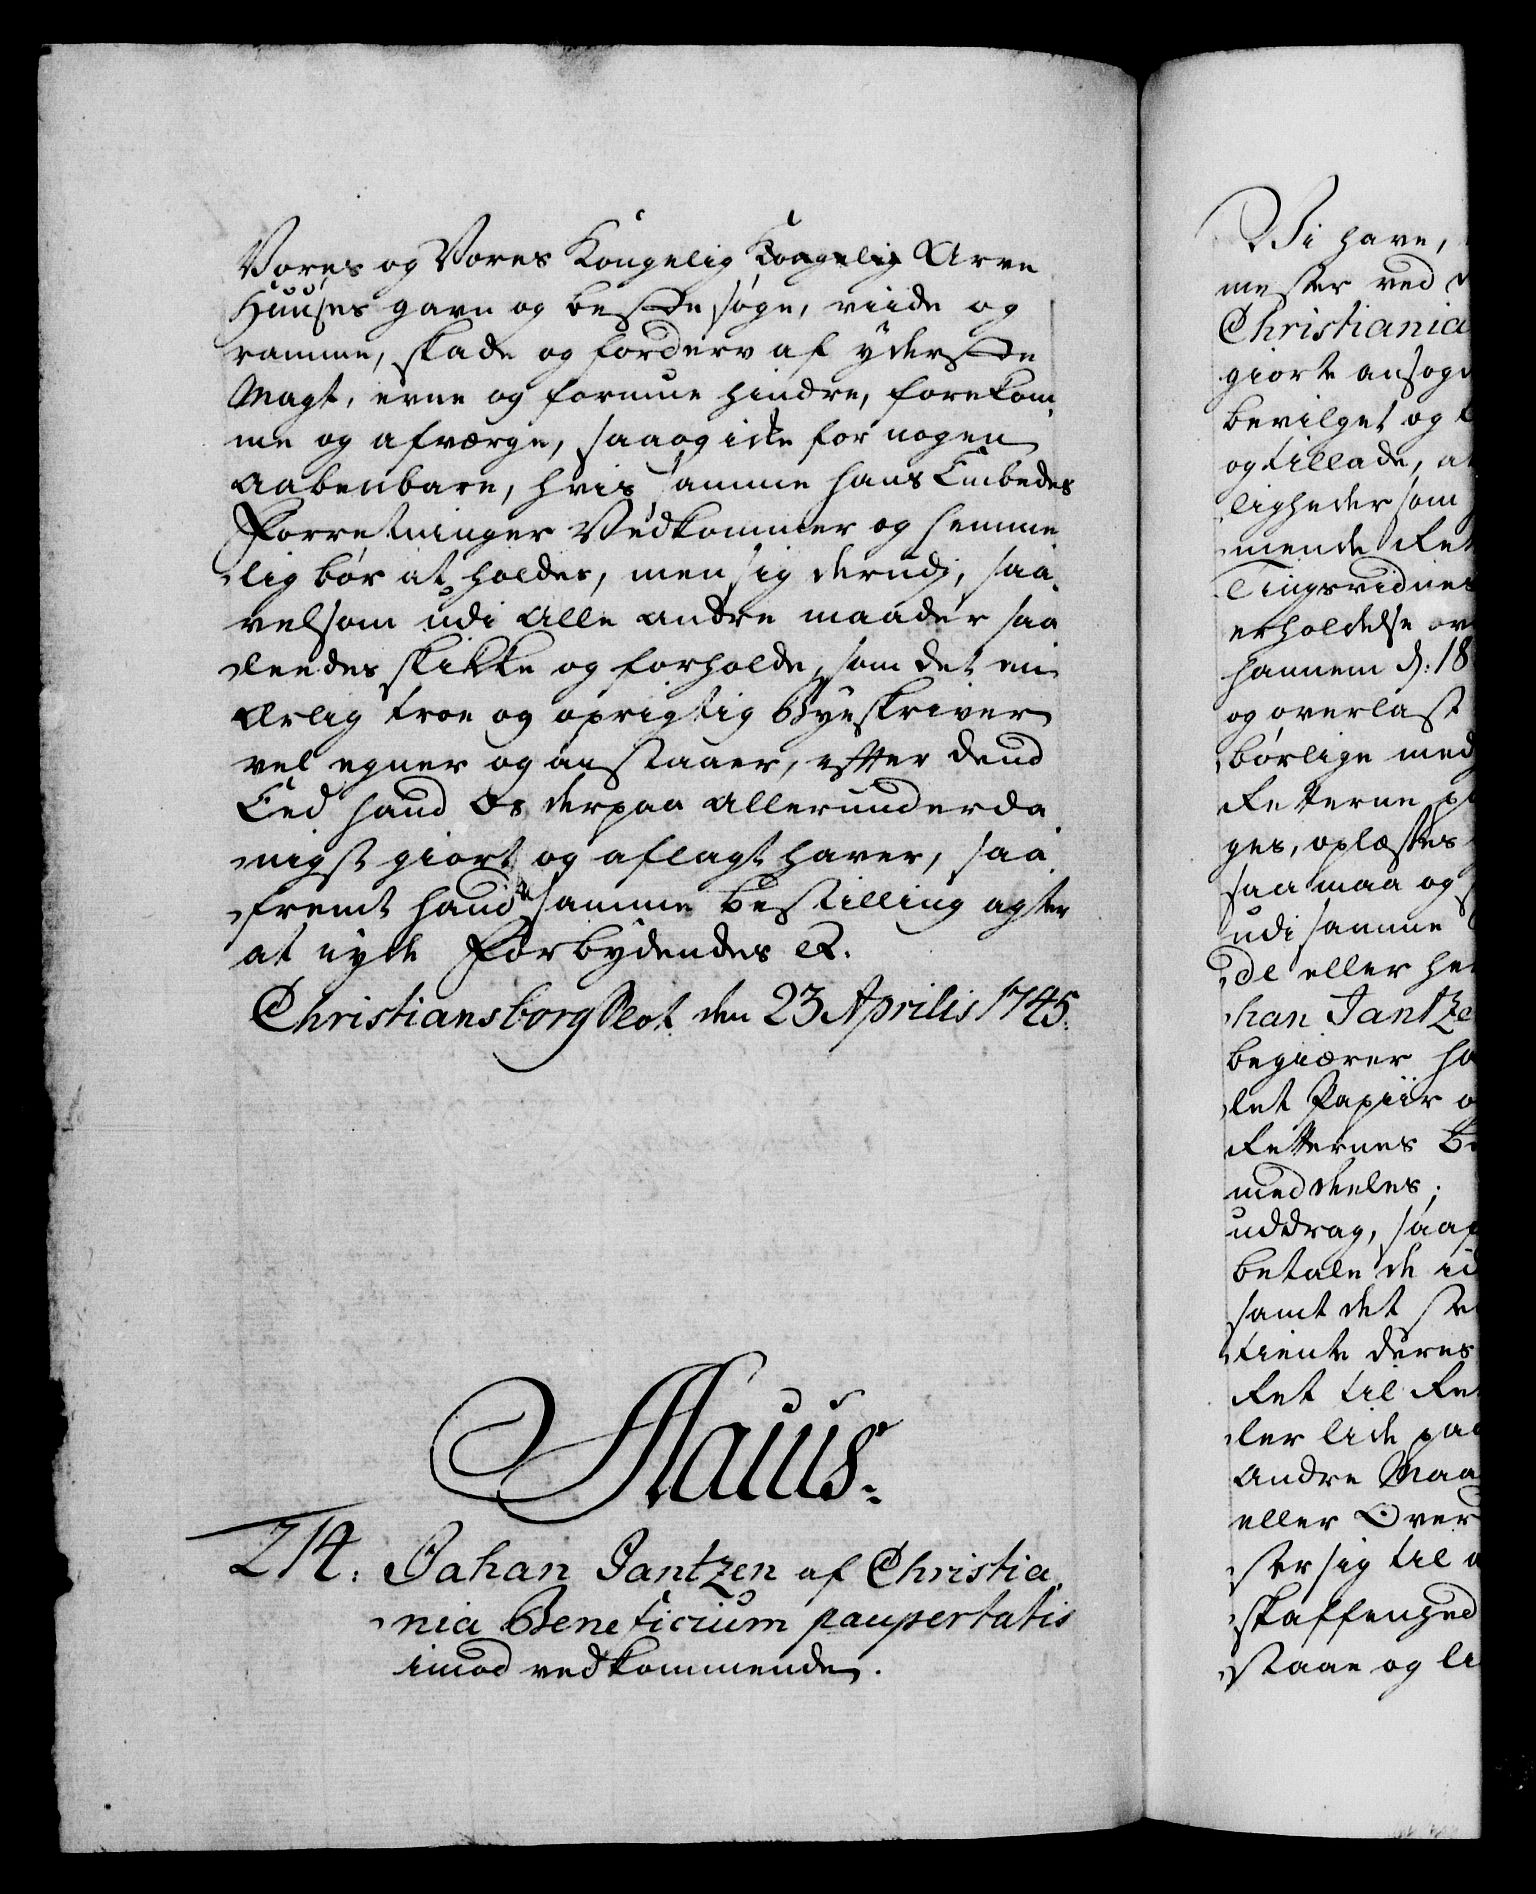 Vores og Vores Kongelig Kongelig Arve
Huuses gavn og beste søge, viide og
ramme, skade og forderv af yderste
Magt, evne og formue hindre, forekom
me og afværge, saaog icke for nogen
aabenbare, hvis samme hans Embedes
Forretninger Vedkommer og hemme
lig bør at holdes, men sig derudj, saa
velsom udi alle andre maader saa
ledes skikke og forholde, som det en
Ærlig troe og oprigtig Byeskriver
vel egner og anstaaer, efter dend
Eed hand Os derpaa allerunderda
nigst giort og aflagt haver, saa
fremt hand samme bestilling agter
at nyde Forbydendes &.
Christiansborg Slot den 23 Aprilis 1745.
Maius.
214. Johan Jantzen af Christia
nia Beneficium paupertatis
imod vedkommende.
Vi have,
mester ved
Christiania
giort ansøgn
bevilget og
og tillade, at
ligheder som
mende Ret
Tingsvidnes
erholdelse
hannem d: 18
og overlast
børlige med
Retterne
ges, oplæstes
saa maa og
udi samme
de eller
han Jantze
begiærer
let Papiir
Retternes
meddeeles;
uddrag,
betale de
samt det
tiente deres
Ret til
ler lide paa
andre Maa
eller Over
ster sig til
skaffenhed
staae og